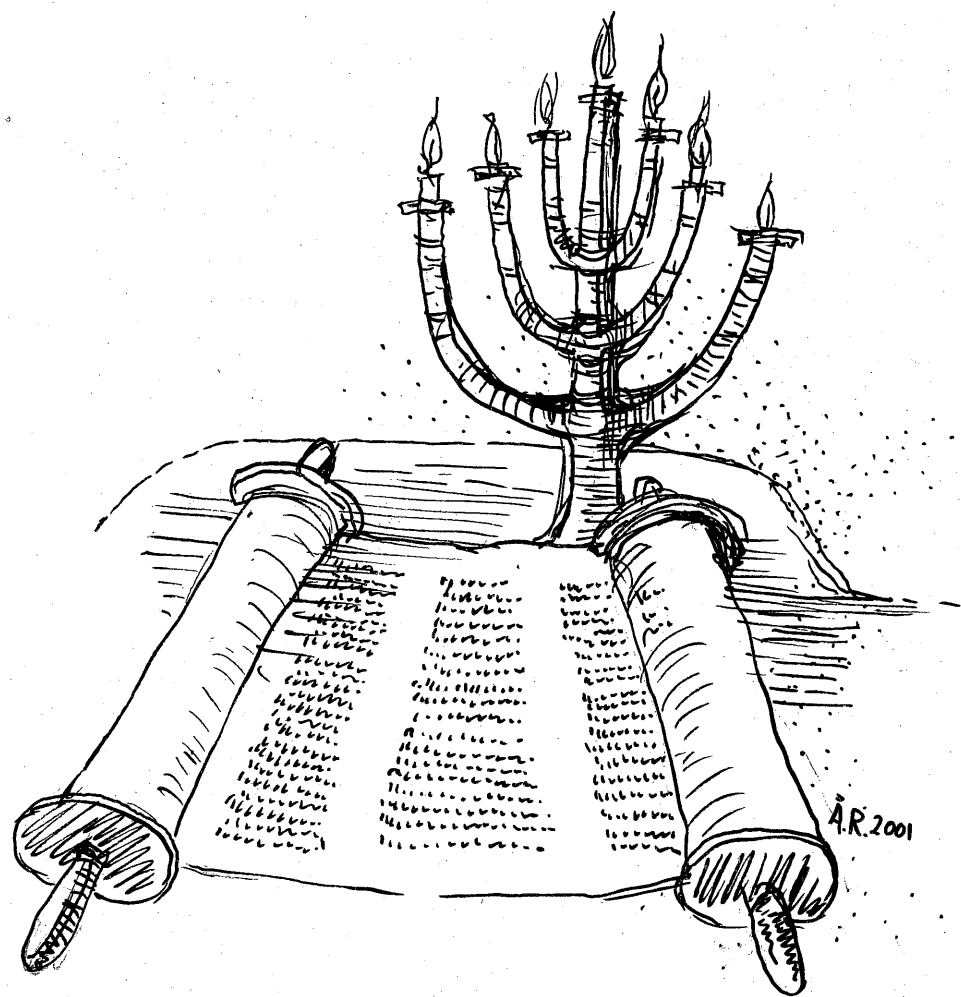 Ä.R.2001